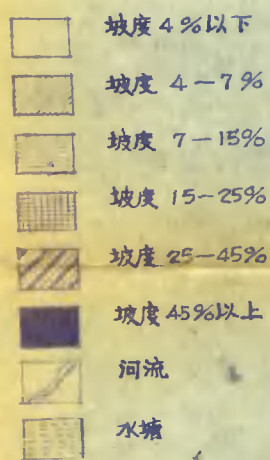 坡度 4%以下
坡度 4-7%
坡度 7-15%
坡度 15-25%
坡度 25-45%
坡度 45%以上
河流
水塘